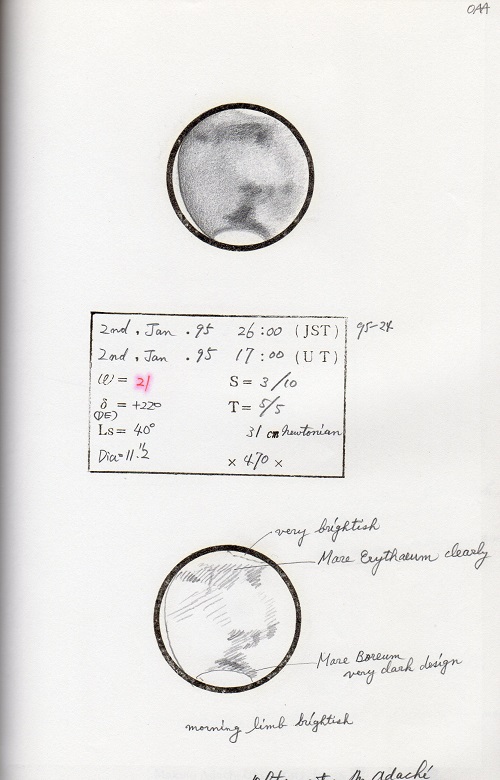 OAA
2nd, Jan. 95 26:00 (JST) 95-24
2nd, Jan. 95 17:00 (UT)
ω = 21 S = 3/10
δ = +22° T = 5/5
(DE)
Ls = 40° 31 cm Newtonian
Dia = 11".2 × 470 ×
very brightish
Mare Erythaeum clearly
Mare Boreum
very dark design
morning limb brightish
M. Adachi